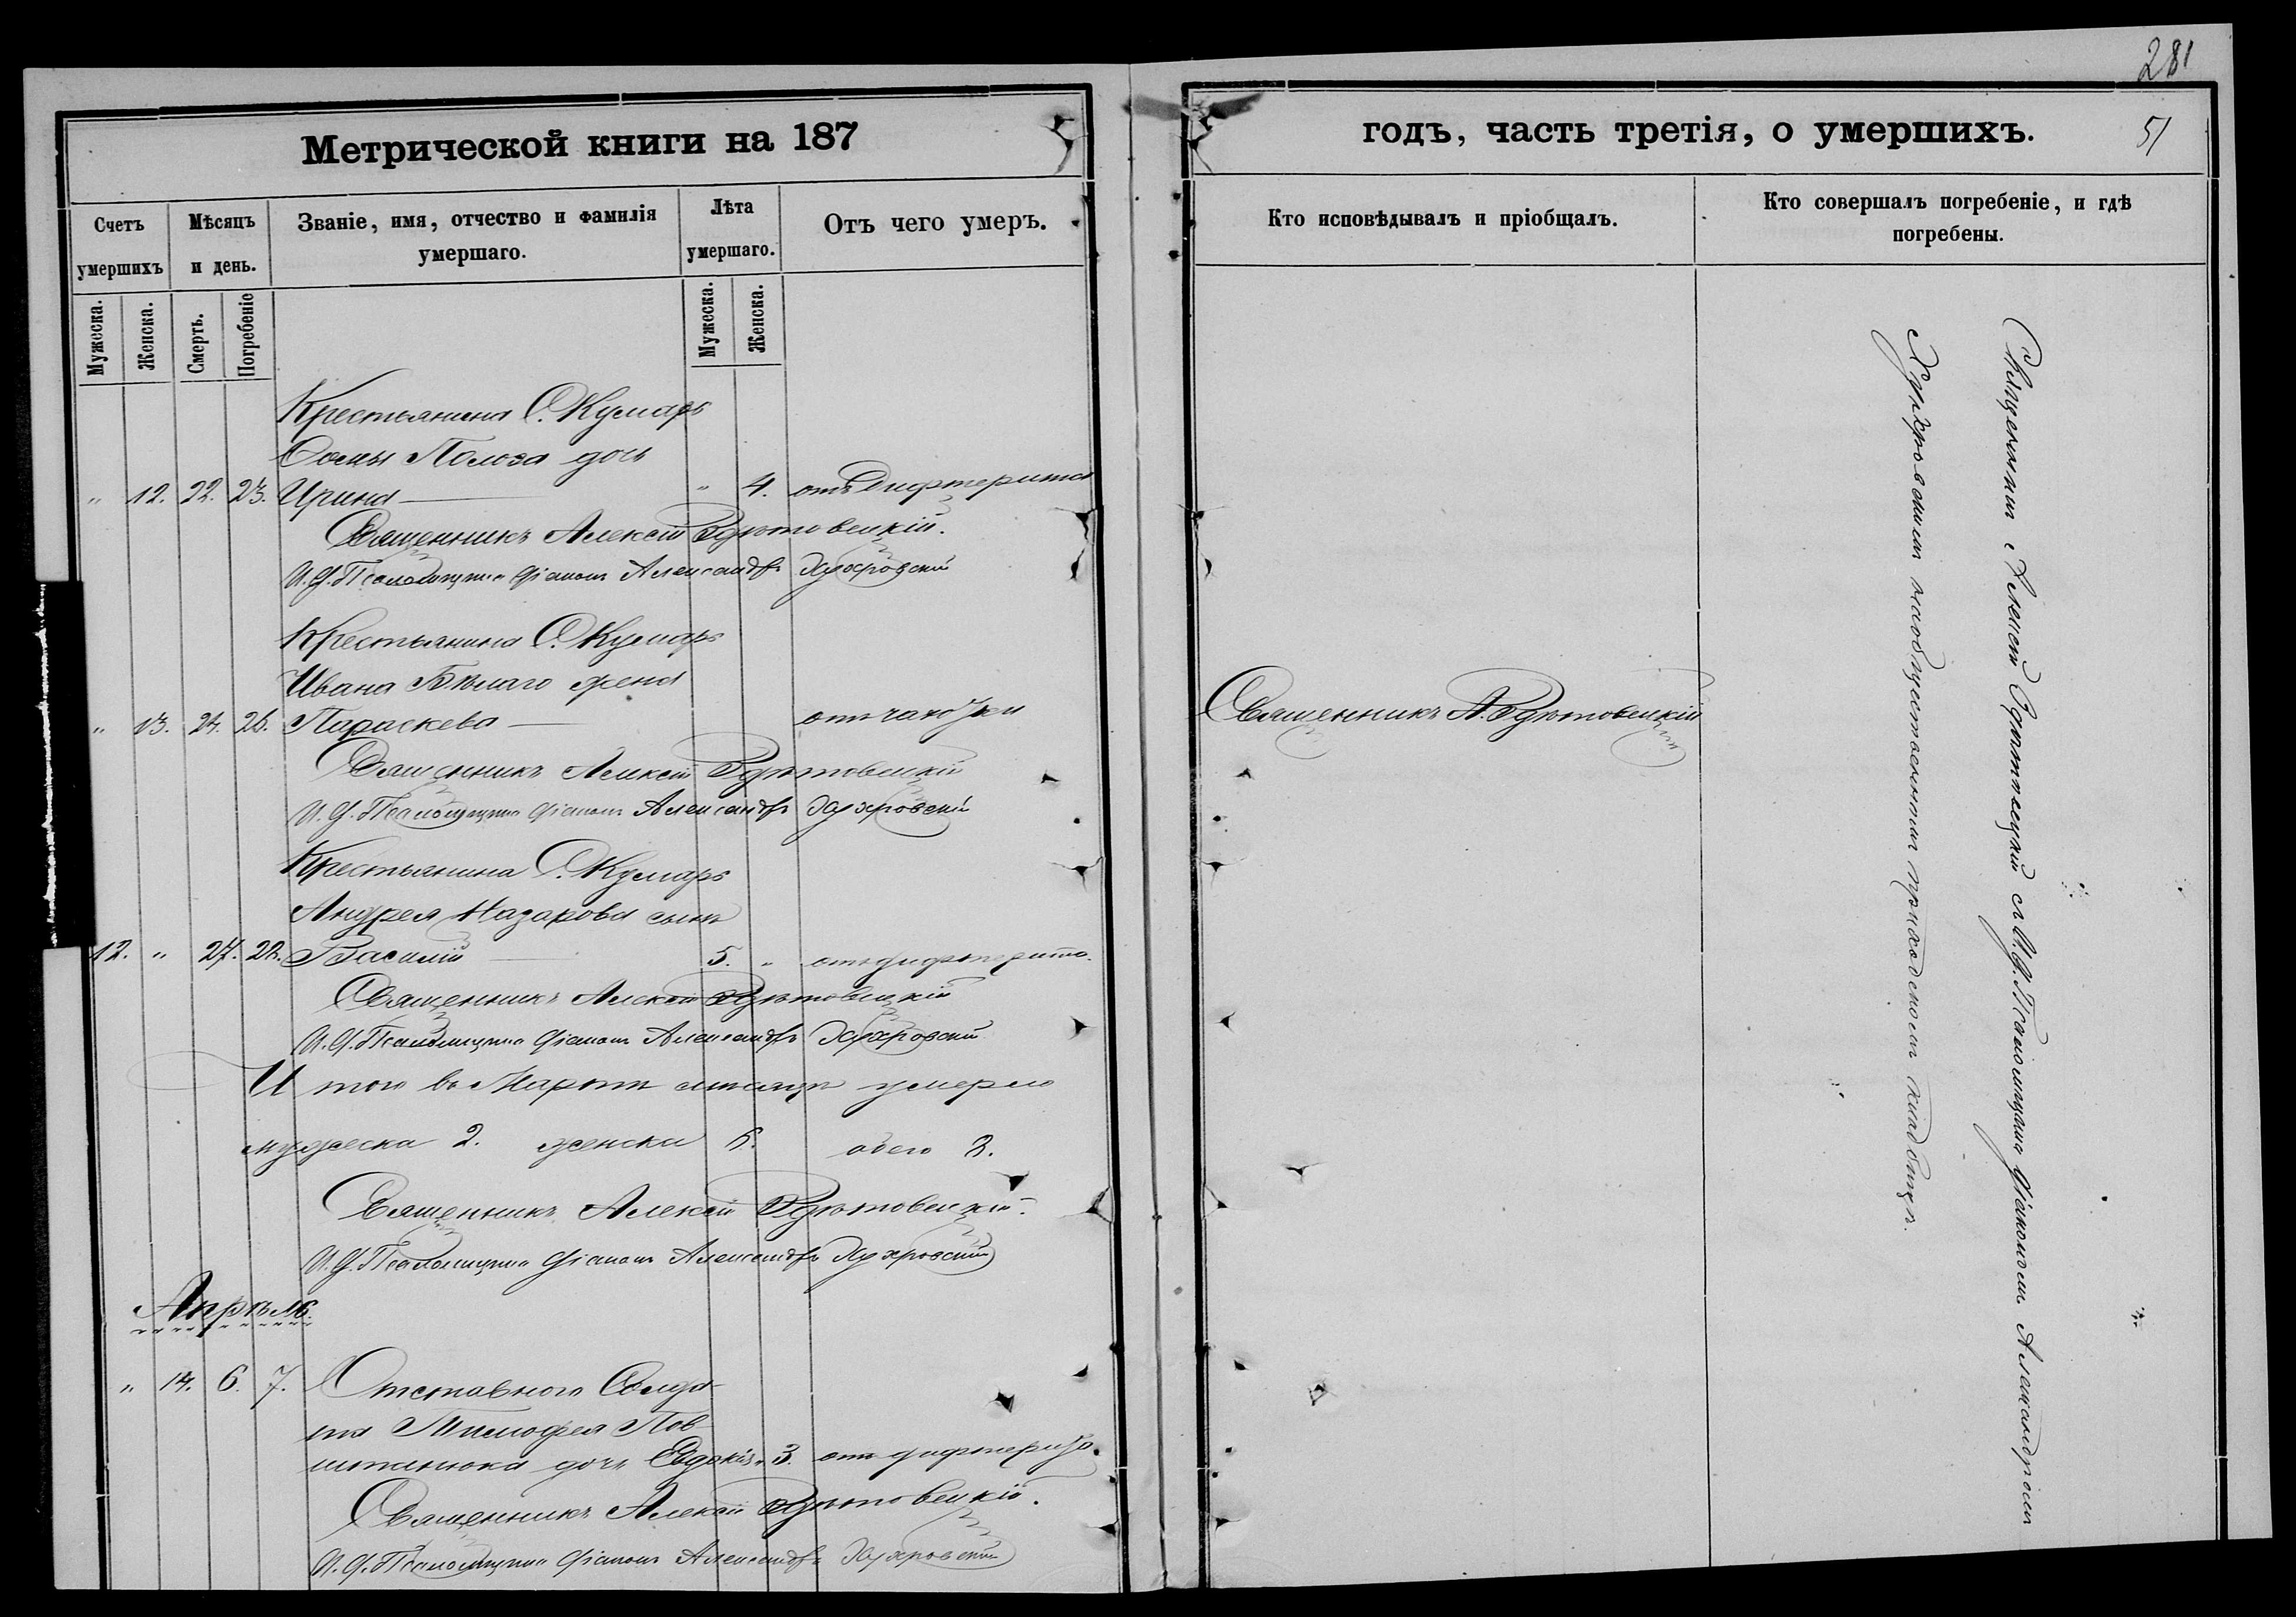 281
51
Метрической книги на 187
годъ, часть третія, о умершихъ.
Счетъ умершихъ
Мѣсяцъ и день.
Званіе, имя, отчество и фамилія умершаго.
Лѣта умершаго.
Отъ чего умеръ.
Кто исповѣдывалъ и пріобщалъ.
Кто совершалъ погребеніе, и гдѣ погребены.
Мужеска.
Женска.
Смерть.
Погребеніе
Мужеска.
Женска.
Крестьянина С. Кумаръ
Ѳомы Полоза дочь
" 12. 22. 23. Ирина " 4. отъ Дифтерита
Священникъ Алексій
И. д. Псаломщика Діаконъ Александръ
Крестьянина С. Кумаръ
Ивана Бѣлаго жена
" 13. 24. 26. Параскева отъ чахотки
Священникъ А.
Священникъ Алексій
И. д. Псаломщика Діаконъ Александръ
Крестьянина С. Кумаръ
Андрея Назарова сынъ
12. " 27. 28. Василій 5. " отъ дифтерита.
Священникъ Алексій
И. д. Псаломщика Діаконъ Александръ
Итого въ Мартѣ мѣсяцѣ умерло
мужеска 2. женска 6. обего 8.
Священникъ Алексій
И. д. Псаломщика Діаконъ Александръ
Апрѣль.
" 14. 6. 7. Отставного Солда
та Тимофея Пов
дочь Евдокія " 3. отъ дифтерита.
Священникъ Алексій
И. д. Псаломщика Діаконъ Александръ
Священникъ Алексій съ И. д. Псаломщика Діакономъ Александромъ
на общественномъ приходскомъ кладбищѣ.